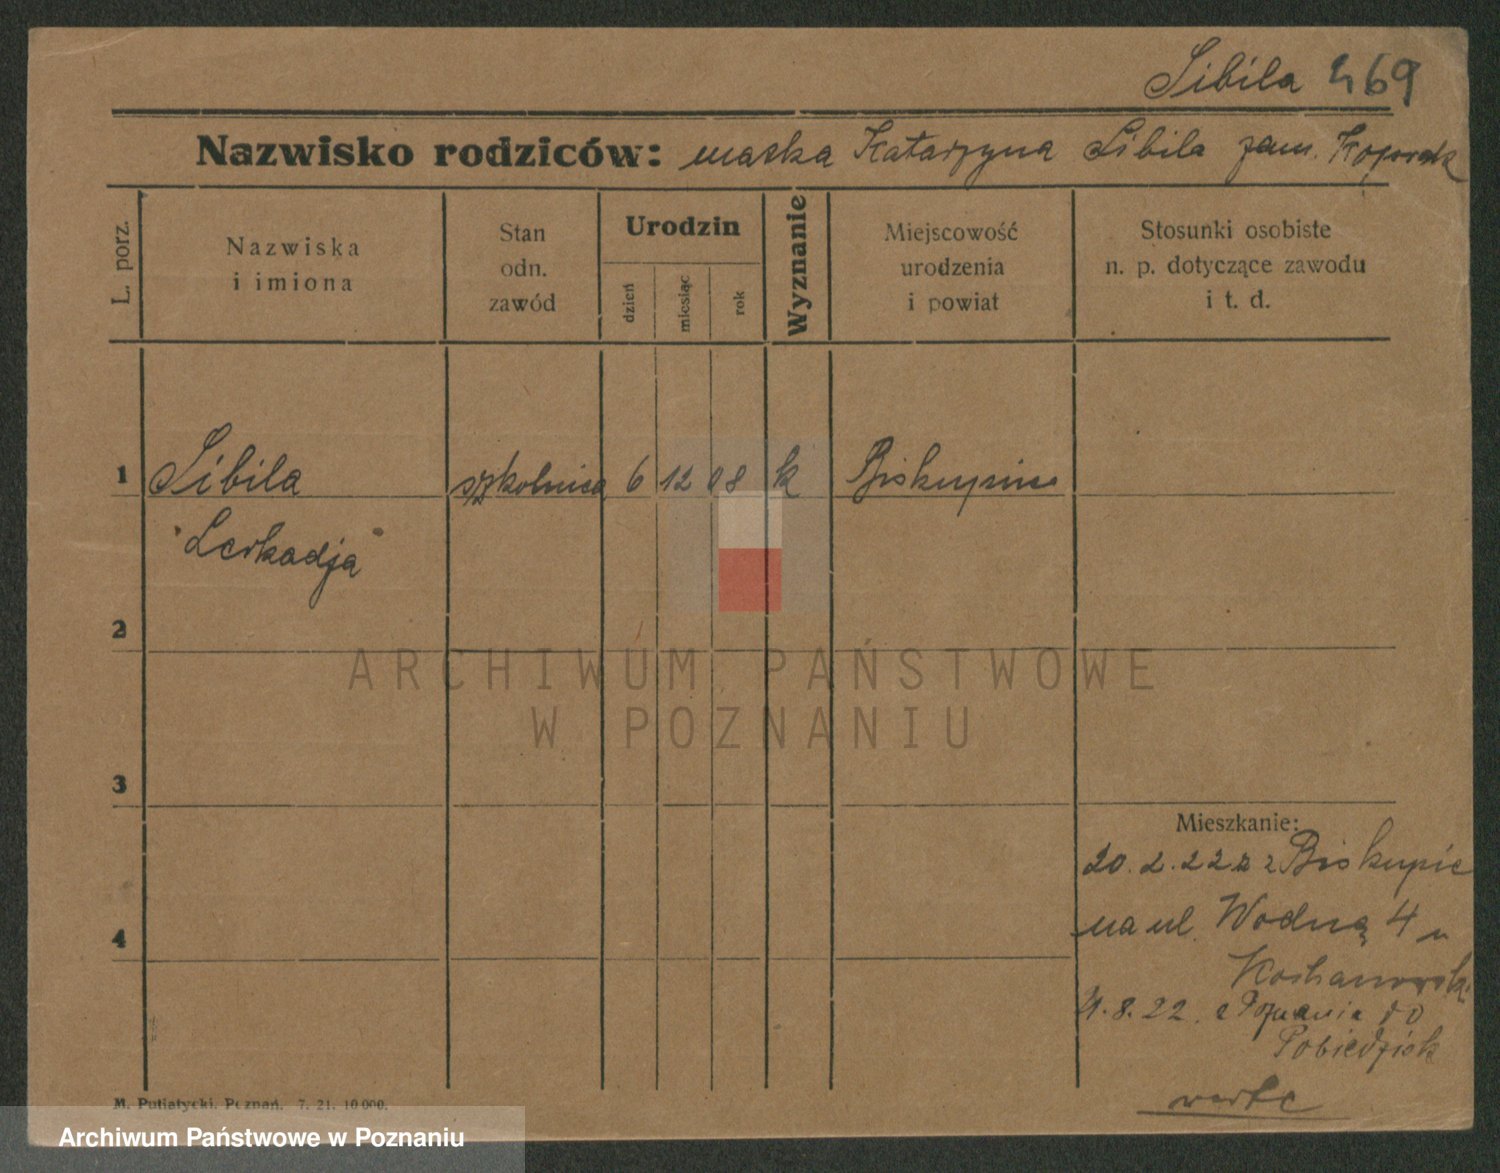 Sibila 469
Nazwisko rodziców: matka Katarzyna Sibila zam.
L. porz.
Nazwiska
i imiona
Stan
odn.
zawód
Urodzin
dzień
miesiąc
rok
Wyznanie
Miejscowość
urodzenia
i powiat
Stosunki osobiste
n. p. dotyczące zawodu
i t. d.
1 Sibila szkolnica 6 12 08 k
"Leokadja"
2
3
4
Mieszkanie:
20.2.22 z Biskupic
na ul. Wodną 4 u
Kochanowski
8.22 z Poznania do
Pobiedzisk
M. Putiatycki, Poznań. 7. 21. 10 000.
ARCHIWUM PAŃSTWOWE
W POZNANIU
Archiwum Państwowe w Poznaniu